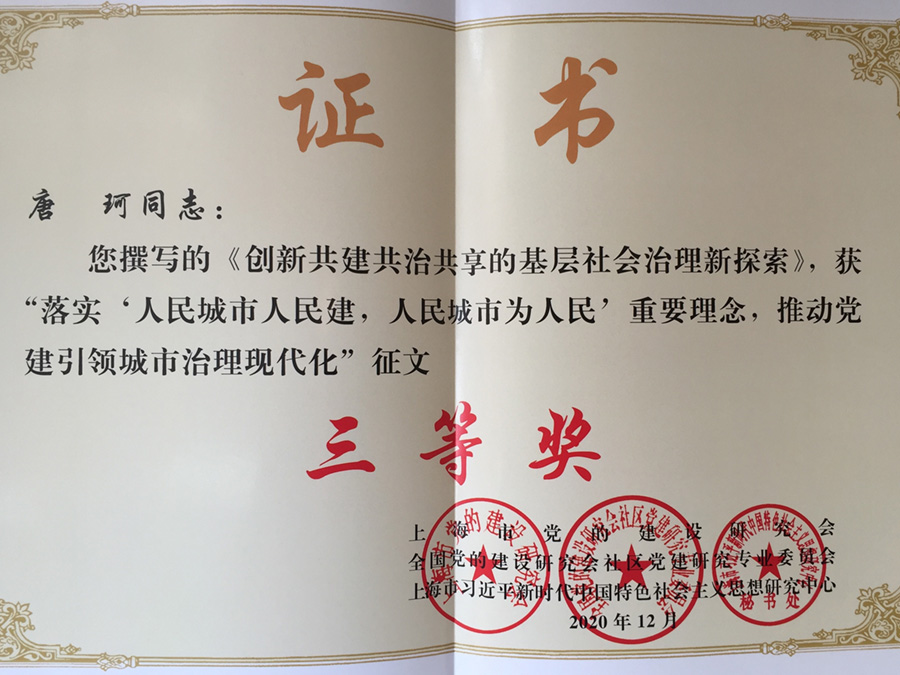 证 书
唐 珂同志：
您撰写的《创新共建共治共享的基层社会治理新探索》，获
“落实‘人民城市人民建，人民城市为人民’重要理念，推动党
建引领城市治理现代化”征文
三等奖
上海市党的建设研究会
全国党的建设研究会社区党建研究专业委员会
上海市习近平新时代中国特色社会主义思想研究中心
2020年12月
上海市党的建设研究会
秘书处